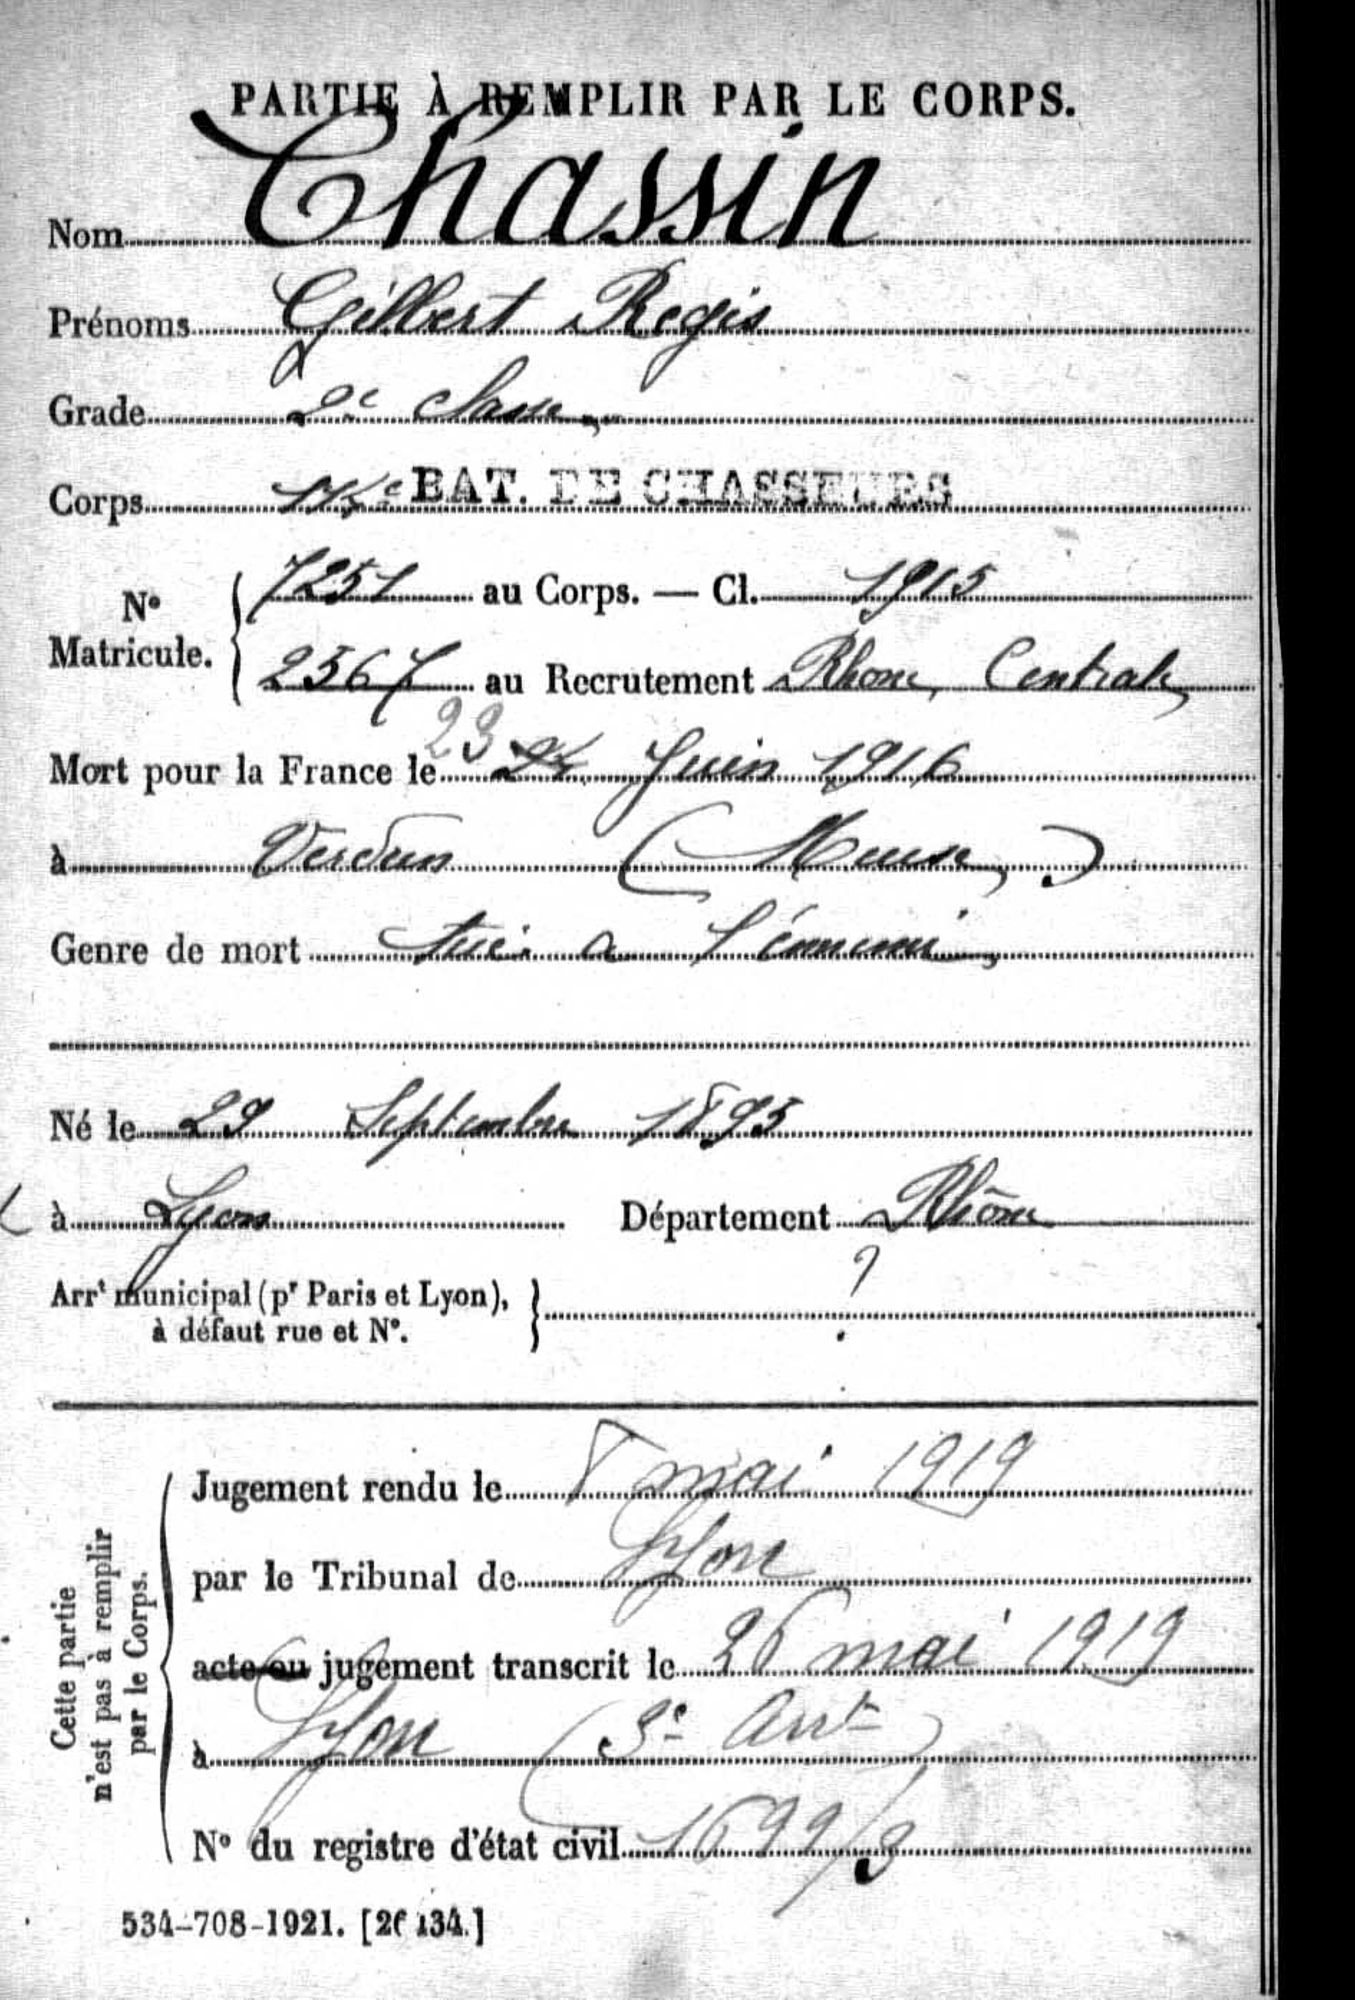 PARTIE À REMPLIR PAR LE CORPS.
Nom Chassin
Prénoms Gilbert Regis
Grade 2e classe
Corps BAT. DE CHASSEURS
No Matricule. 7251 au Corps. — Cl. 1915
2567 au Recrutement Rhone Central
23
Mort pour la France le 24 Juin 1916
à Verdun (Meuse)
Genre de mort tué a l'énnemi
Né le 29 Septembre 1895
à Lyon Département Rhône
Arrt municipal (pr Paris et Lyon), à défaut rue et No. ?
Cette partie n'est pas à remplir par le Corps.
Jugement rendu le 8 mai 1919
par le Tribunal de Lyon
acte ou jugement transcrit le 26 mai 1919
à Lyon (3e Arrt)
No du registre d'état civil 1699/3
534-708-1921. [26434.]